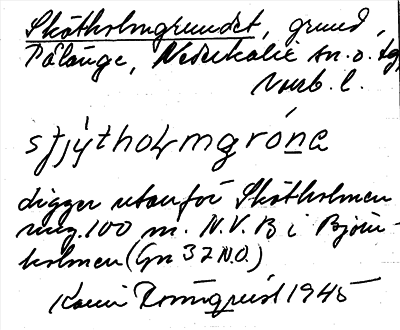 Skötholmgrundet, grund,
Pålänge, Nederkalix sn. o. tg,
Norrb. l.
stjy̍tholmgrónɛ
ligger utanför Skötholmen
ung. 100 m. N.V.B i Björn-
holmen (Gn 37 N.O.)
Karin Rönnquist 1945